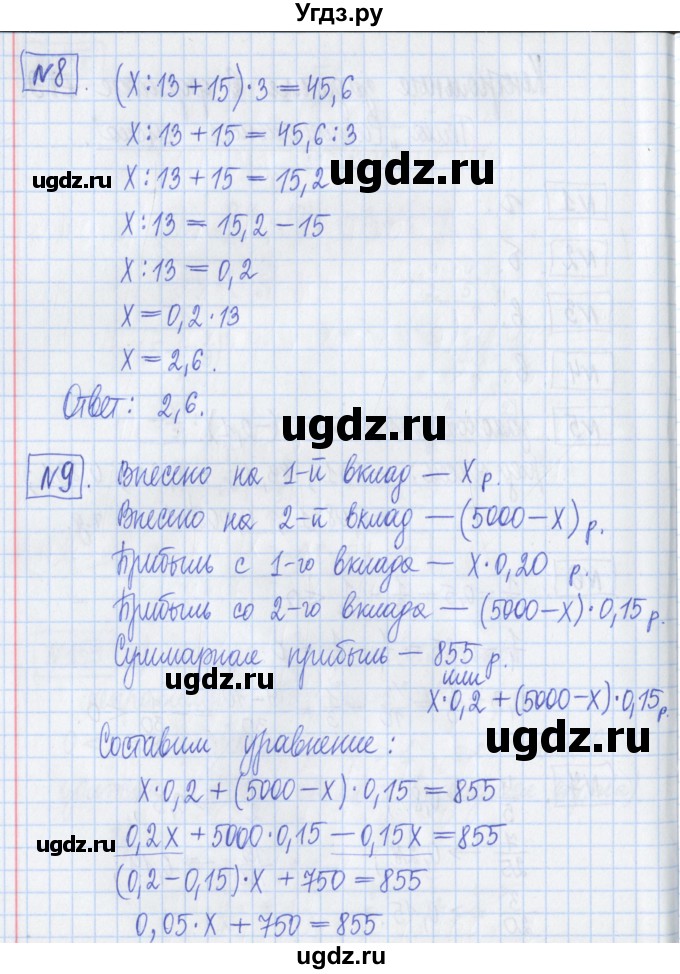 Угдз.ру
№8. (x:13+15)·3=45,6
x:13+15=45,6:3
ugdz.ru x:13+15=15,2 ugdz.ru
x:13=15,2-15
x:13=0,2
x=0,2·13
x=2,6.
Ответ: 2,6.
ugdz.ru
№9. Внесено на 1-й вклад — x р.
Внесено на 2-й вклад — (5000-x) р.
ugdz.ru
Прибыль с 1-го вклада — x·0,20 р.
Прибыль со 2-го вклада — (5000-x)·0,15 р.
Суммарная прибыль — 855 р.
ugdz.ru или
x·0,2+(5000-x)·0,15 р.
ugdz.ru
Составим уравнение:
x·0,2+(5000-x)·0,15=855
ugdz.ru 0,2x+5000·0,15-0,15x=855
(0,2-0,15)·x+750=855
0,05·x+750=855
ugdz.ru